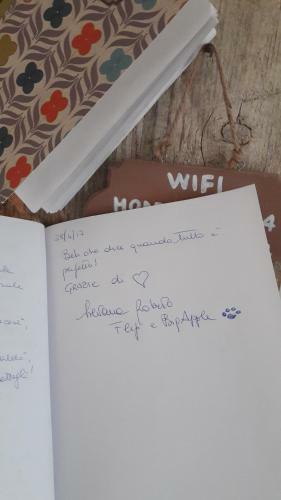 WIFI
HOM
4
25/4/17
Beh che dire quando tutto è
perfetto!
Grazie di ♡
Roberto
Flip e PopApple